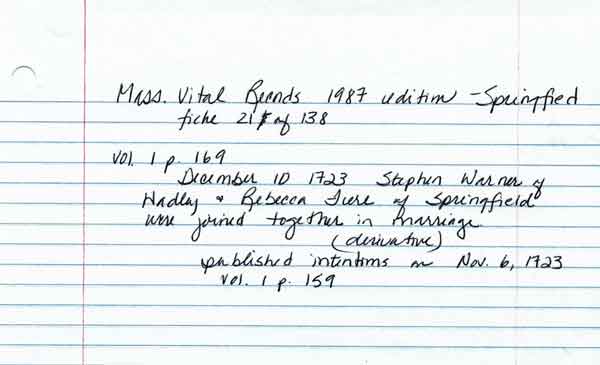 Mass. Vital Records 1987 edition - Springfield
fiche 21 of 138
Vol. 1 p. 169
December 10 1723 Stephen Warner of
Hadley & Rebecca of Springfield
were joined together in marriage
(derivative)
published intentions on Nov. 6, 1723
Vol. 1 p. 159